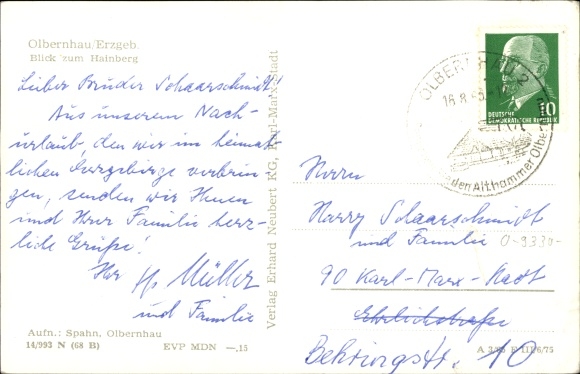 Olbernhau/Erzgeb.
Blick zum Hainberg
Lieber Bruder Schaarschmidt!
Aus unserem Nach-
urlaub, den wir im heimat-
lichen Erzgebirge verbrin-
gen, senden wir Ihnen
und Ihrer Familie herz-
liche Grüße!
Ihr
Müller
und Familie
Aufn.: Spahn, Olbernhau
14/993 N (68 B) EVP MDN —,15
Verlag Erhard Neubert KG, Karl-Marx-Stadt
OLBERNHAU 2
den Althammer Olbern
DEUTSCHE
DEMOKRATISCHE REPUBLIK
10
Herrn
Harry Schaarschmidt
und Familie
90 Karl-Marx-Stadt
Ehrlichstraße
Behringstr. 10